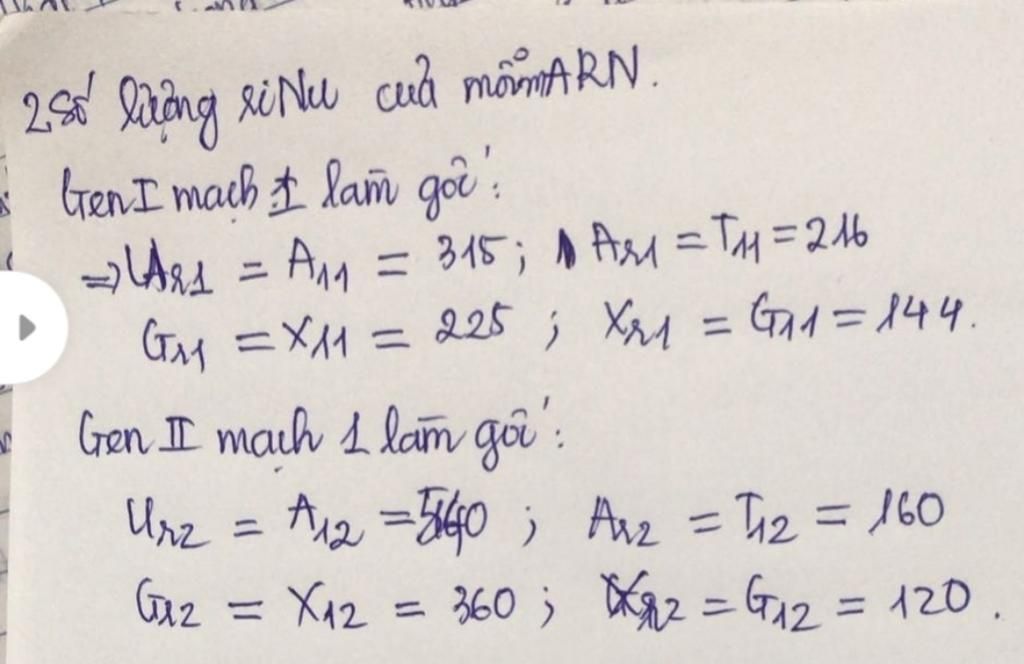 2 Số lượng riNu của mỗi mARN.
Gen I mạch 1 làm gốc:
=> Ur1 = A11 = 315; Ar1 = T11 = 216
Gr1 = X11 = 225; Xr1 = G11 = 144.
Gen II mạch 1 làm gốc:
Ur2 = A12 = ; Ar2 = T12 = 160
Gr2 = X12 = 360; Xr2 = G12 = 120.